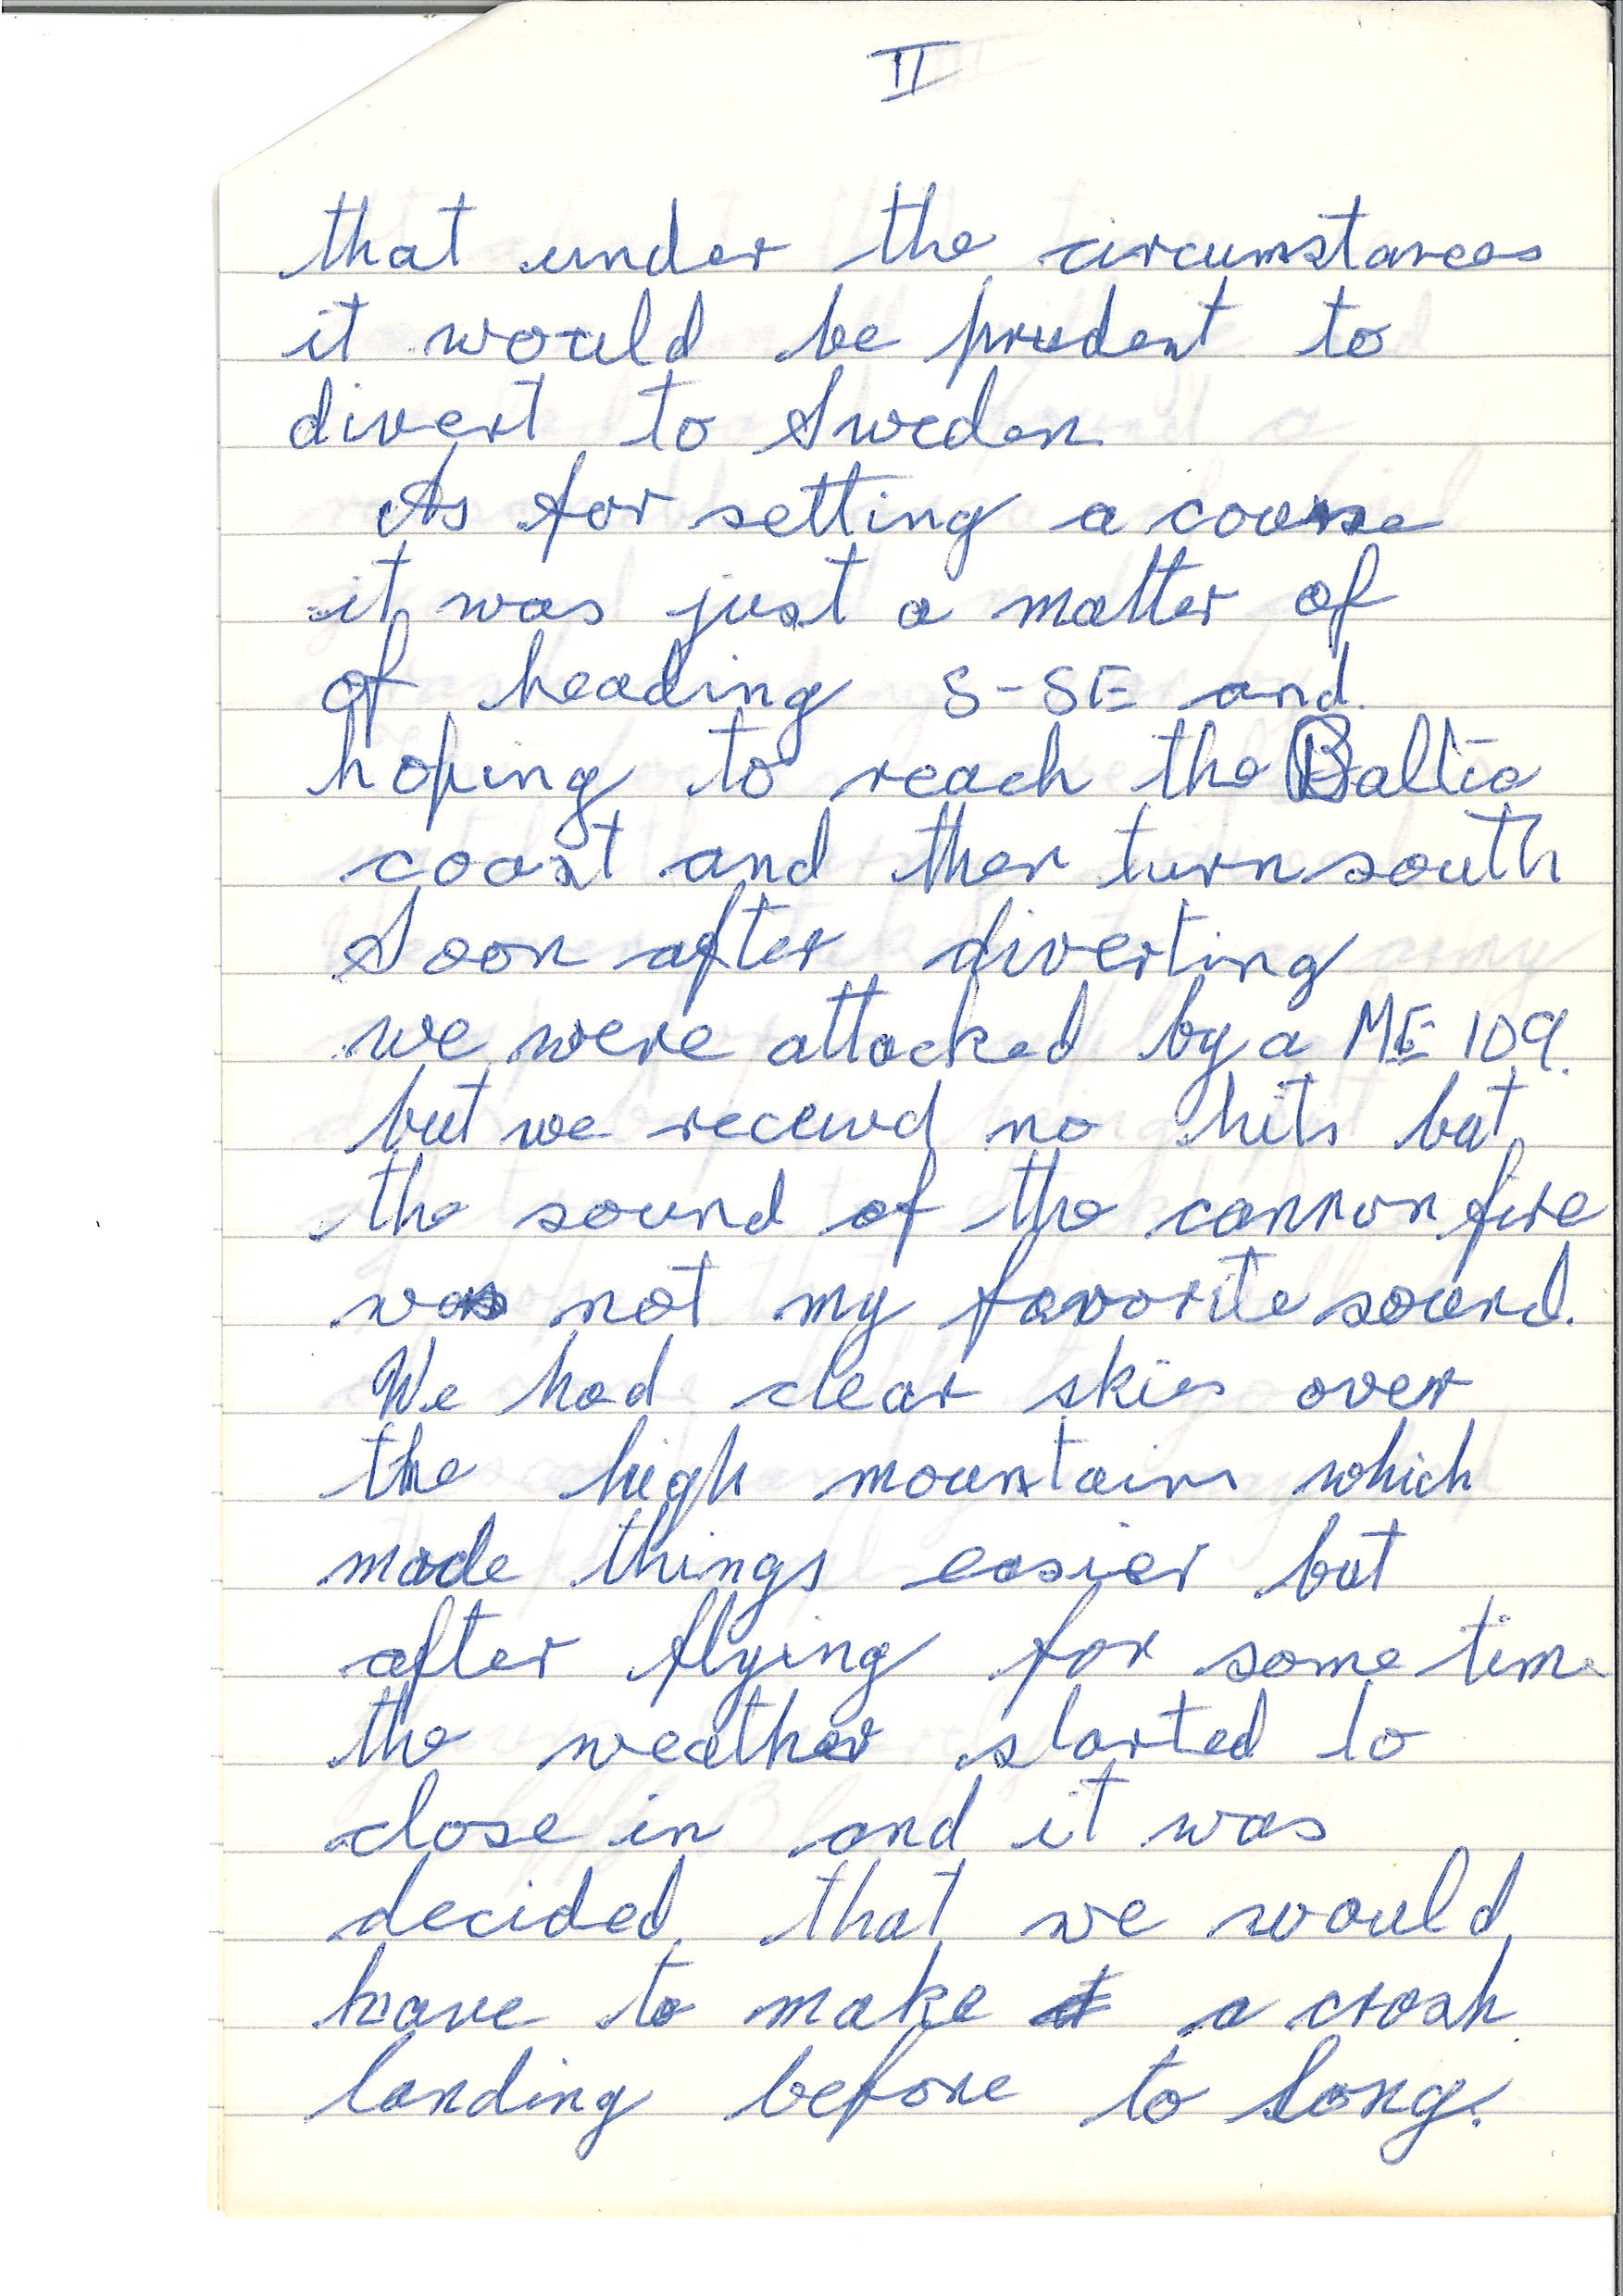 II
that under the circumstances
it would be prudent to
divert to Sweden
As for setting a course
it was just a matter of
of heading S-SE and
hoping to reach the Baltic
coast and then turn south
Soon after diverting
we were attacked by a ME 109.
but we receivd no hits but
the sound of the cannon fire
was not my favorite sound.
We had clear skies over
the high mountains which
made things easier but
after flying for some time
the weather started to
close in and it was
decided that we would
have to make a crash
landing before to long.